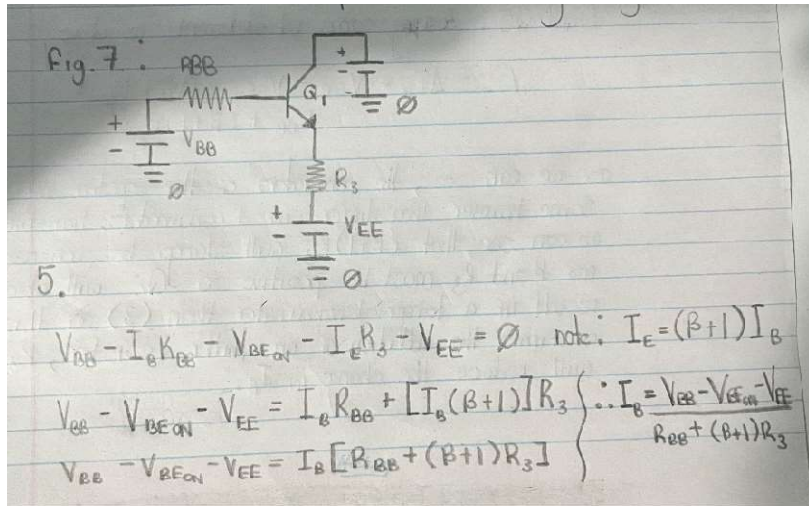 Fig. 7 :
RBB
+
-
Q1
Ø
+
-
VBB
Ø
R3
+
-
VEE
Ø
5.
VBB - IBRBB - VBE ON - IER3 - VEE = Ø note: IE = (β+1)IB
VBB - VBE ON - VEE = IBRBB + [IB(β+1)]R3 } ∴ IB = VBB - VBE ON - VEE / RBB + (β+1)R3
VBB - VBE ON - VEE = IB[RBB + (β+1)R3]